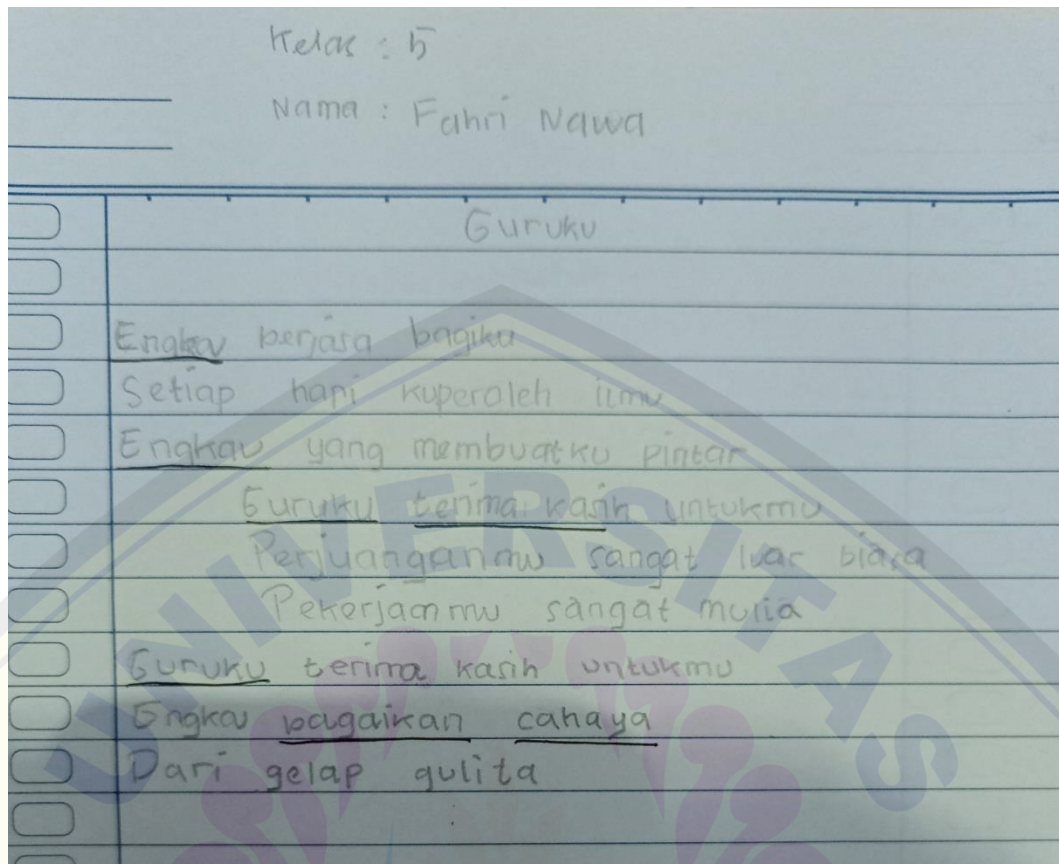 Kelas : 5
Nama : Fahri Nawa
Guruku
Engkau berjasa bagiku
Setiap hari kuperoleh ilmu
Engkau yang membuatku pintar
Guruku terima kasih untukmu
Perjuanganmu sangat luar biasa
Pekerjaanmu sangat mulia
Guruku terima kasih untukmu
Engkau bagaikan cahaya
Dari gelap gulita
UNIVERSITAS